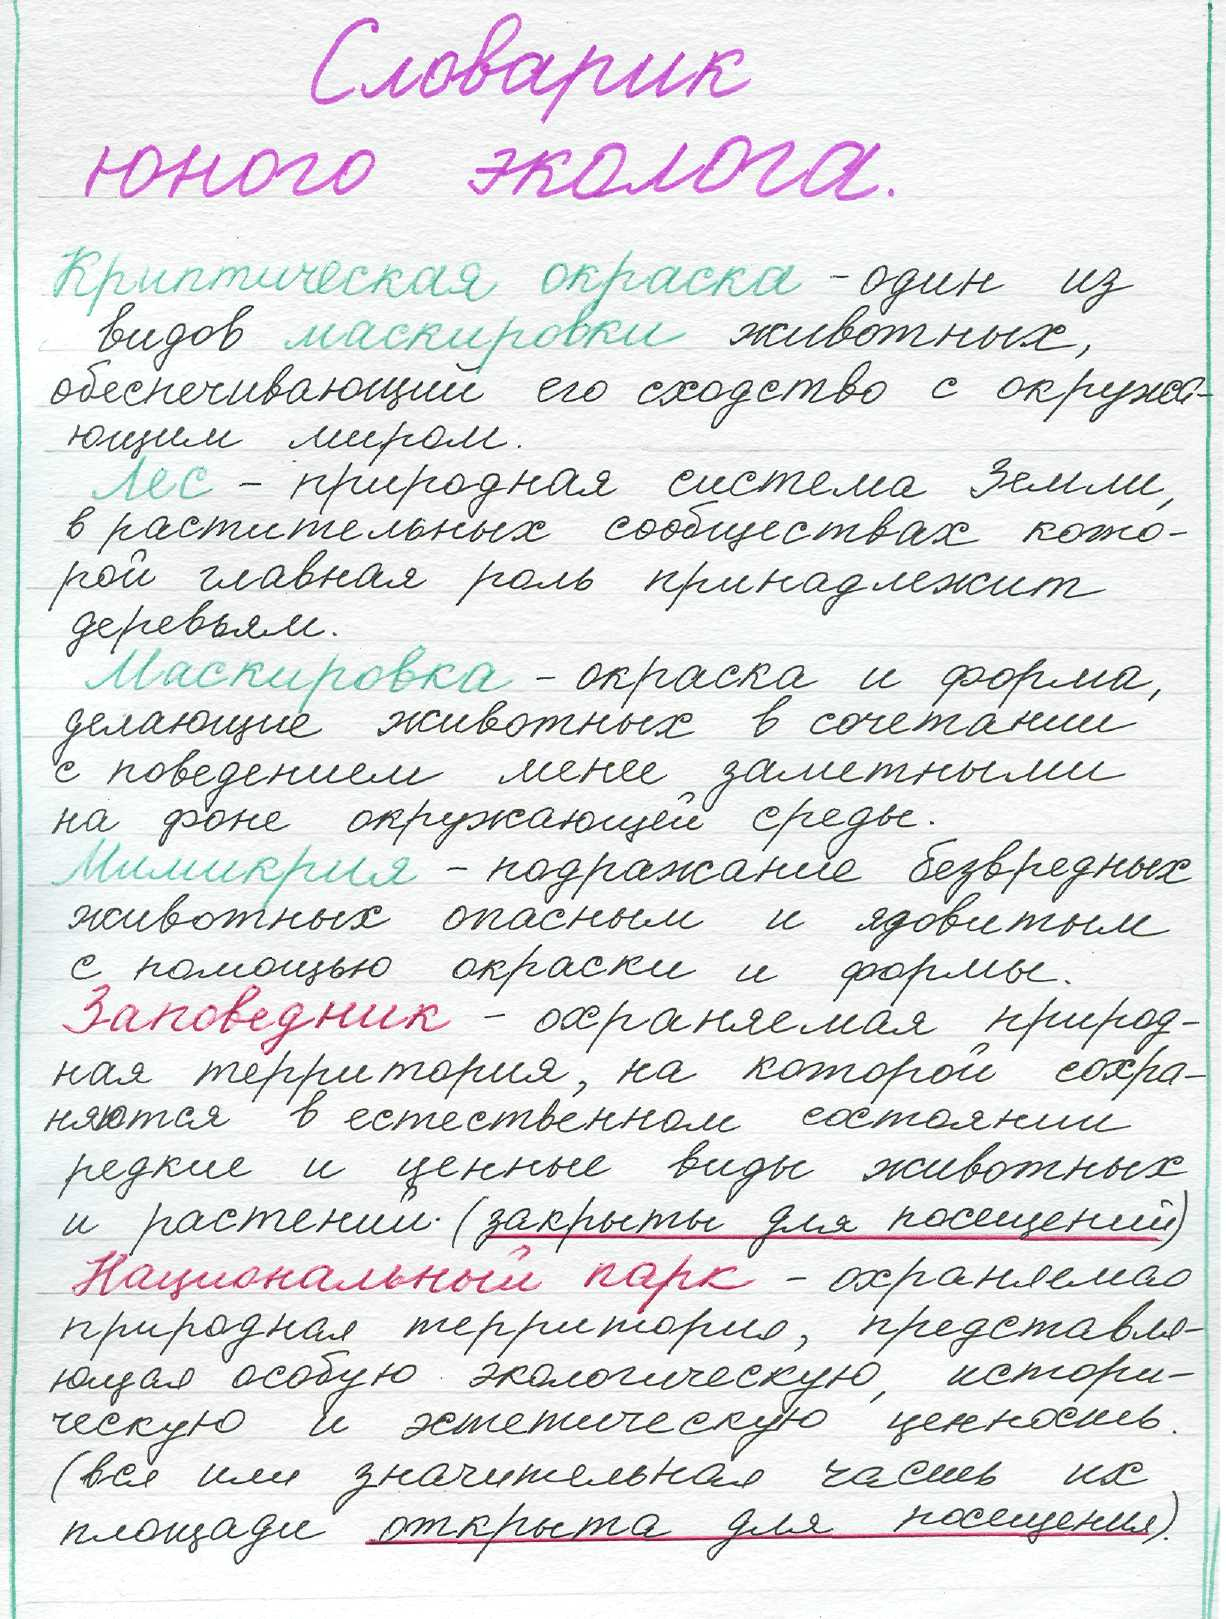 Словарик
юного эколога.
Криптическая окраска - один из
видов маскировки животных,
обеспечивающий его сходство с окружа-
ющим миром.
Лес - природная система Земли,
в растительных сообществах кото-
рой главная роль принадлежит
деревьям.
Маскировка - окраска и форма,
делающие животных в сочетании
с поведением менее заметными
на фоне окружающей среды.
Мимикрия - подражание безвредных
животных опасным и ядовитым
с помощью окраски и формы.
Заповедник - охраняемая природ-
ная территория, на которой сохра-
няются в естественном состоянии
редкие и ценные виды животных
и растений. (закрыты для посещений)
Национальный парк - охраняемая
природная территория, представля-
ющая особую экологическую, истори-
ческую и эстетическую ценность.
(вся или значительная часть их
площади открыта для посещения).